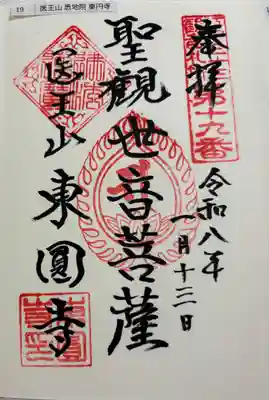 19 医王山 悉地院 東円寺
奉拝
第十九番
令和八年
一月十三日
聖観世音菩薩
医王山
東圓寺